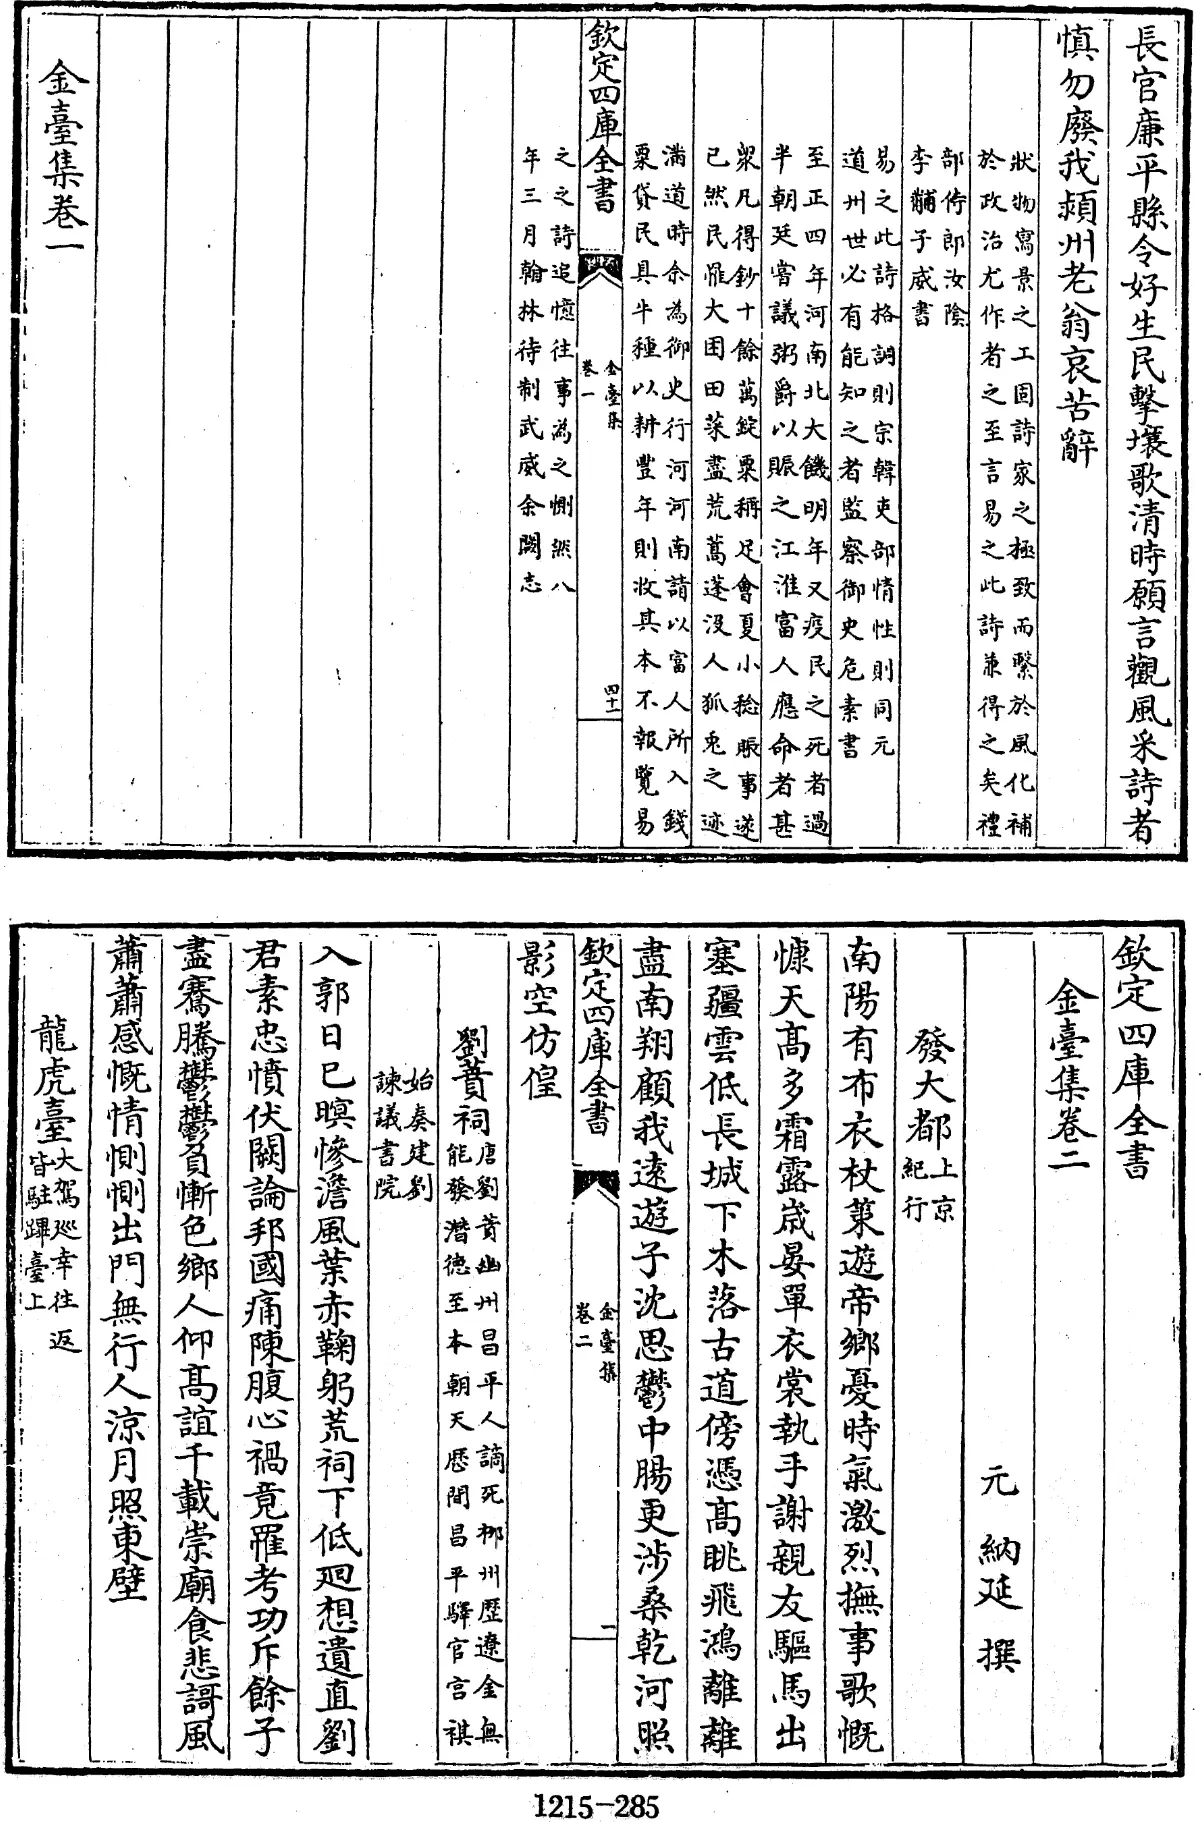 長官廉平縣令好生民擊壤歌清時願言觀風采詩者
慎勿廢我頴州老翁哀苦辭
狀物寫景之工固詩家之極致而繫於風化補
於政治尤作者之至言易之此詩兼得之矣禮
部侍郎汝陰
李黼子威書
易之此詩格調則宗韓吏部情性則同元
道州世必有能知之者監察御史危素書
至正四年河南北大饑明年又疫民之死者過
半朝廷嘗議粥爵以賑之江淮富人應命者甚
衆凡得鈔十餘萬錠粟稱足會夏小稔賑事遂
已然民罹大困田萊盡荒蒿蓬没人狐兎之迹
欽定四庫全書
金臺集
卷一
四十一
滿道時余為御史行河河南請以富人所入錢
粟貸民具牛種以耕豐年則收其本不報覽易
之之詩追憶往事為之惻然八
年三月翰林待制武威余闕志
金臺集卷一
欽定四庫全書
金臺集卷二
元 納延 撰
發大都上京
紀行
南陽有布衣杖策遊帝鄉憂時氣激烈撫事歌慨
慷天髙多霜露歳晏單衣裳執手謝親友驅馬出
塞疆雲低長城下木落古道傍憑髙眺飛鴻離離
盡南翔顧我遠遊子沈思鬱中腸更渉桑乾河照
欽定四庫全書
金臺集
卷二
一
影空仿偟
劉蕡祠唐劉蕡幽州昌平人謫死栁州歴遼金無
能發潛德至本朝天歴間昌平驛官宫祺
始奏建劉
諫議書院
入郭日已暝惨澹風葉赤鞠躬荒祠下低迴想遺直劉
君素忠憤伏闕論邦國痛陳腹心禍竟罹考功斥餘子
盡騫騰鬱鬱負慚色鄉人仰髙誼千載崇廟食悲謌風
蕭蕭感慨情惻惻出門無行人凉月照東壁
龍虎臺大駕廵幸往返
皆駐蹕臺上
1215-285